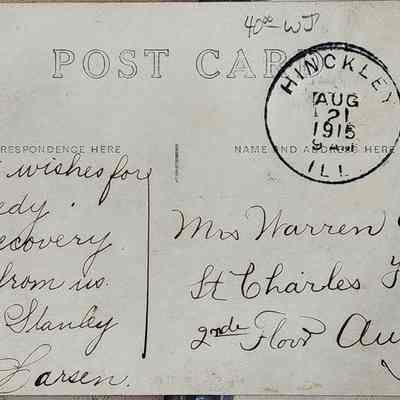 40⁰⁰ WJ
POST CAR
HINCKLEY
AUG
21
1915
9 AM
ILL.
RRESPONDENCE HERE
NAME AND ADDRESS HERE
wishes for
edy
ecovery
from us
Stanley
Larsen.
Mrs Warren
St Charles
2nd Floor Au